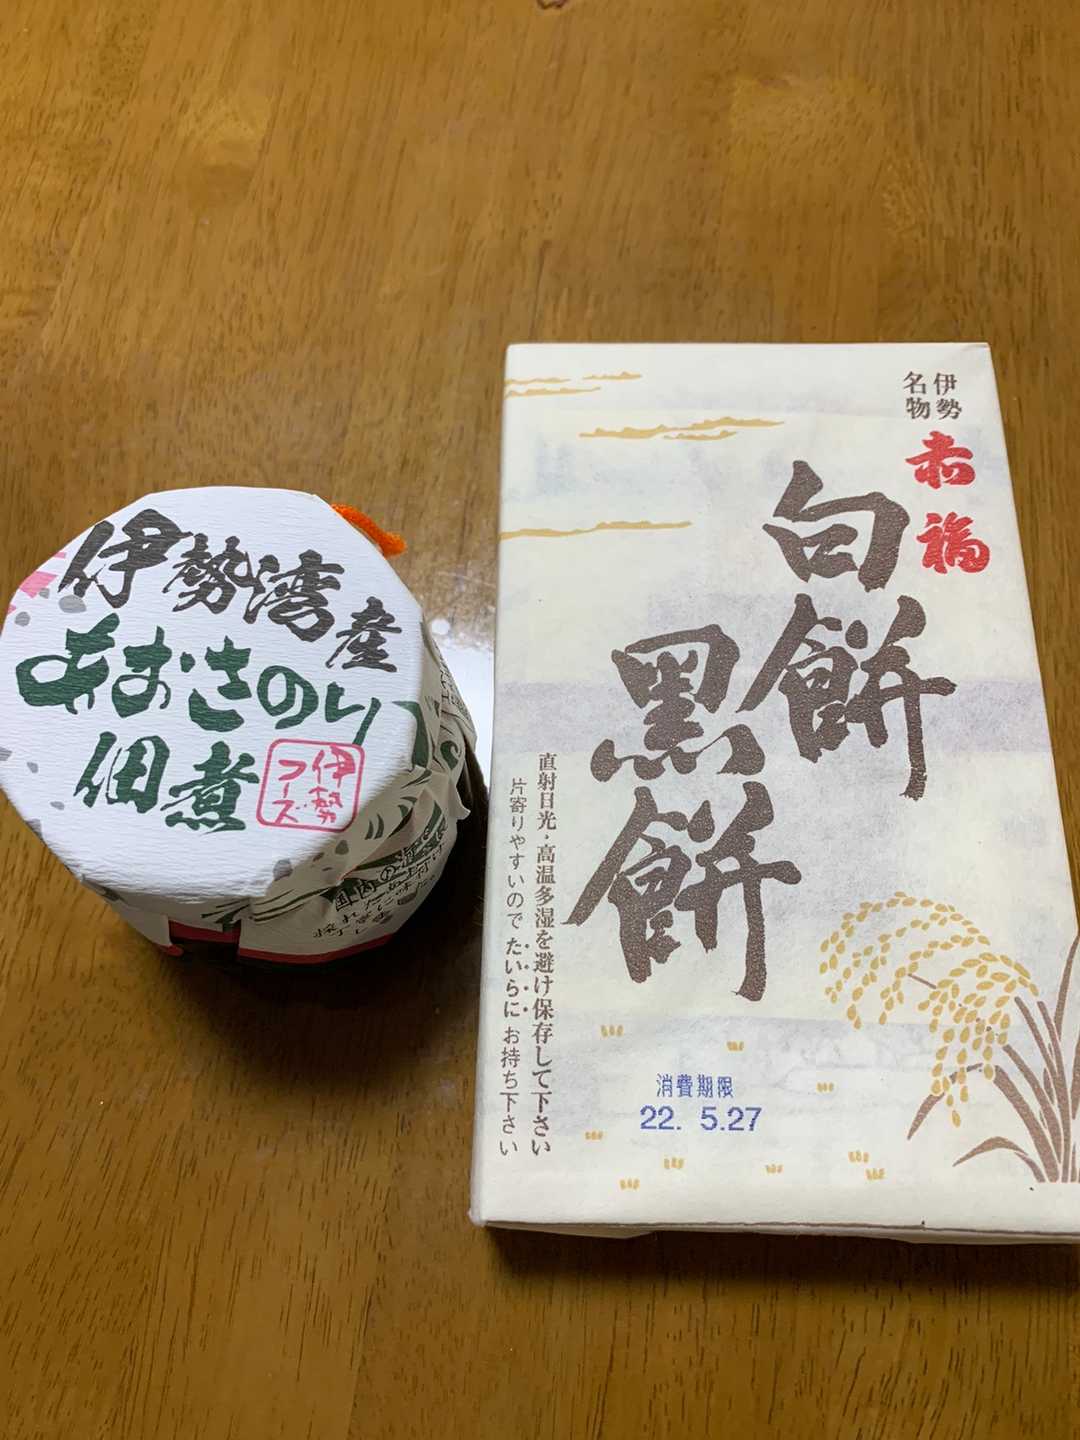 伊勢湾産
あおさのり
佃煮
伊勢
フーズ
国内の海で
採れた
丁
伊勢
名物
赤福
白餅
黑餅
直射日光・高温多湿を避け保存して下さい
片寄りやすいので たいらに お持ち下さい
消費期限
22. 5.27